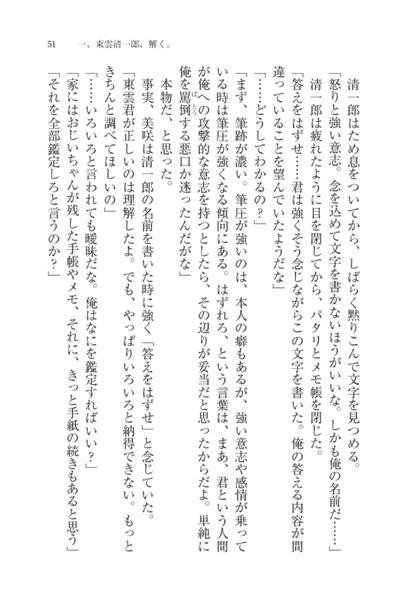 51　一、東雲清一郎、解く。
　清一郎はため息をついてから、しばらく黙りこんで文字を見つめる。
「怒りと強い意志。念を込めて文字を書かないほうがいいな。しかも俺の名前だ……」
　清一郎は疲れたように目を閉じてから、パタリとメモ帳を閉じた。
「答えをはずせ……君は強くそう念じながらこの文字を書いた。俺の答える内容が間
違っていることを望んでいたようだな」
「……どうしてわかるの？」
「まず、筆跡が濃い。筆圧が強いのは、本人の癖もあるが、強い意志や感情が乗って
いる時は筆圧が強くなる傾向にある。はずれろ、という言葉は、まあ、君という人間
が俺への攻撃的な意志を持つとしたら、その辺りが妥当だと思ったからだよ。単純に
俺を罵倒する悪口か迷ったんだがな」
　本物だ、と思った。
　事実、美咲は清一郎の名前を書いた時に強く「答えをはずせ」と念じていた。
「東雲君が正しいのは理解したよ。でも、やっぱりいろいろと納得できない。もっと
きちんと調べてほしいの」
「……いろいろと言われても曖昧だな。俺はなにを鑑定すればいい？」
「家にはおじいちゃんが残した手帳やメモ、それに、きっと手紙の続きもあると思う」
「それを全部鑑定しろと言うのか？」